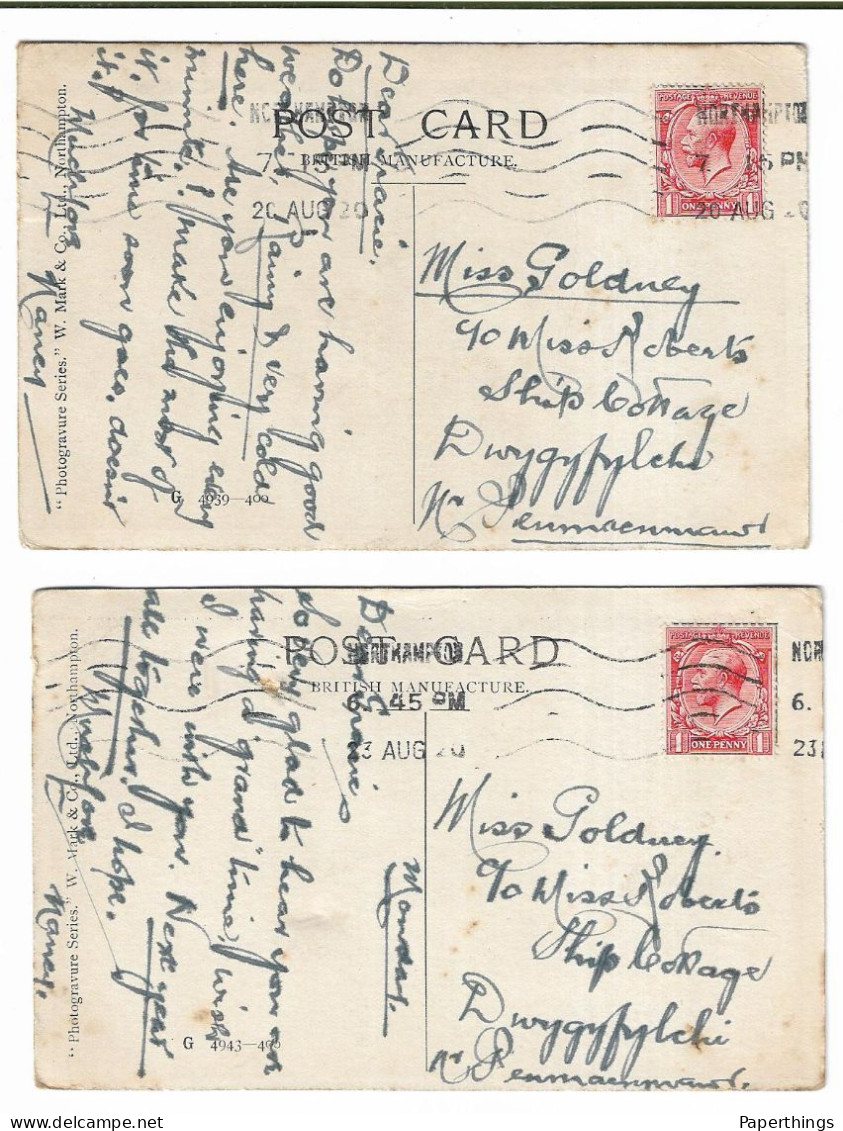 POST CARD
BRITISH MANUFACTURE.
NORTHAMPTON
7 15 PM
20 AUG 20
POSTAGE REVENUE
1 ONE PENNY 1
NORTHAMPTON
7. 15 PM
20 AUG 20
Dear Gracie,
Do hope you are having good
weather, rainy & very cold
here. Are you enjoying every
minute? Make the most of
it, for time soon goes, doesn't
it.
Much love
Nancy
"Photogravure Series." W. Mark & Co., Ltd., Northampton.
G 4939—400
Miss Goldney
c/o Miss Roberts
Ship Cottage
Dwygyfylchi
Nr Penmaenmawr
POST CARD
BRITISH MANUFACTURE.
NORTHAMPTON
6. 45 PM
23 AUG 20
POSTAGE REVENUE
1 ONE PENNY 1
NOR
6.
23
Monday.
Dear Gracie
So very glad to hear you are
having a "grand" time, wish
I were with you. Next year
all together, I hope.
Much love
Nancy.
"Photogravure Series." W. Mark & Co., Ltd., Northampton.
G 4943—400
Miss Goldney.
c/o Miss Roberts
Ship Cottage
Dwygyfylchi
Nr Penmaenmawr.
Paperthings